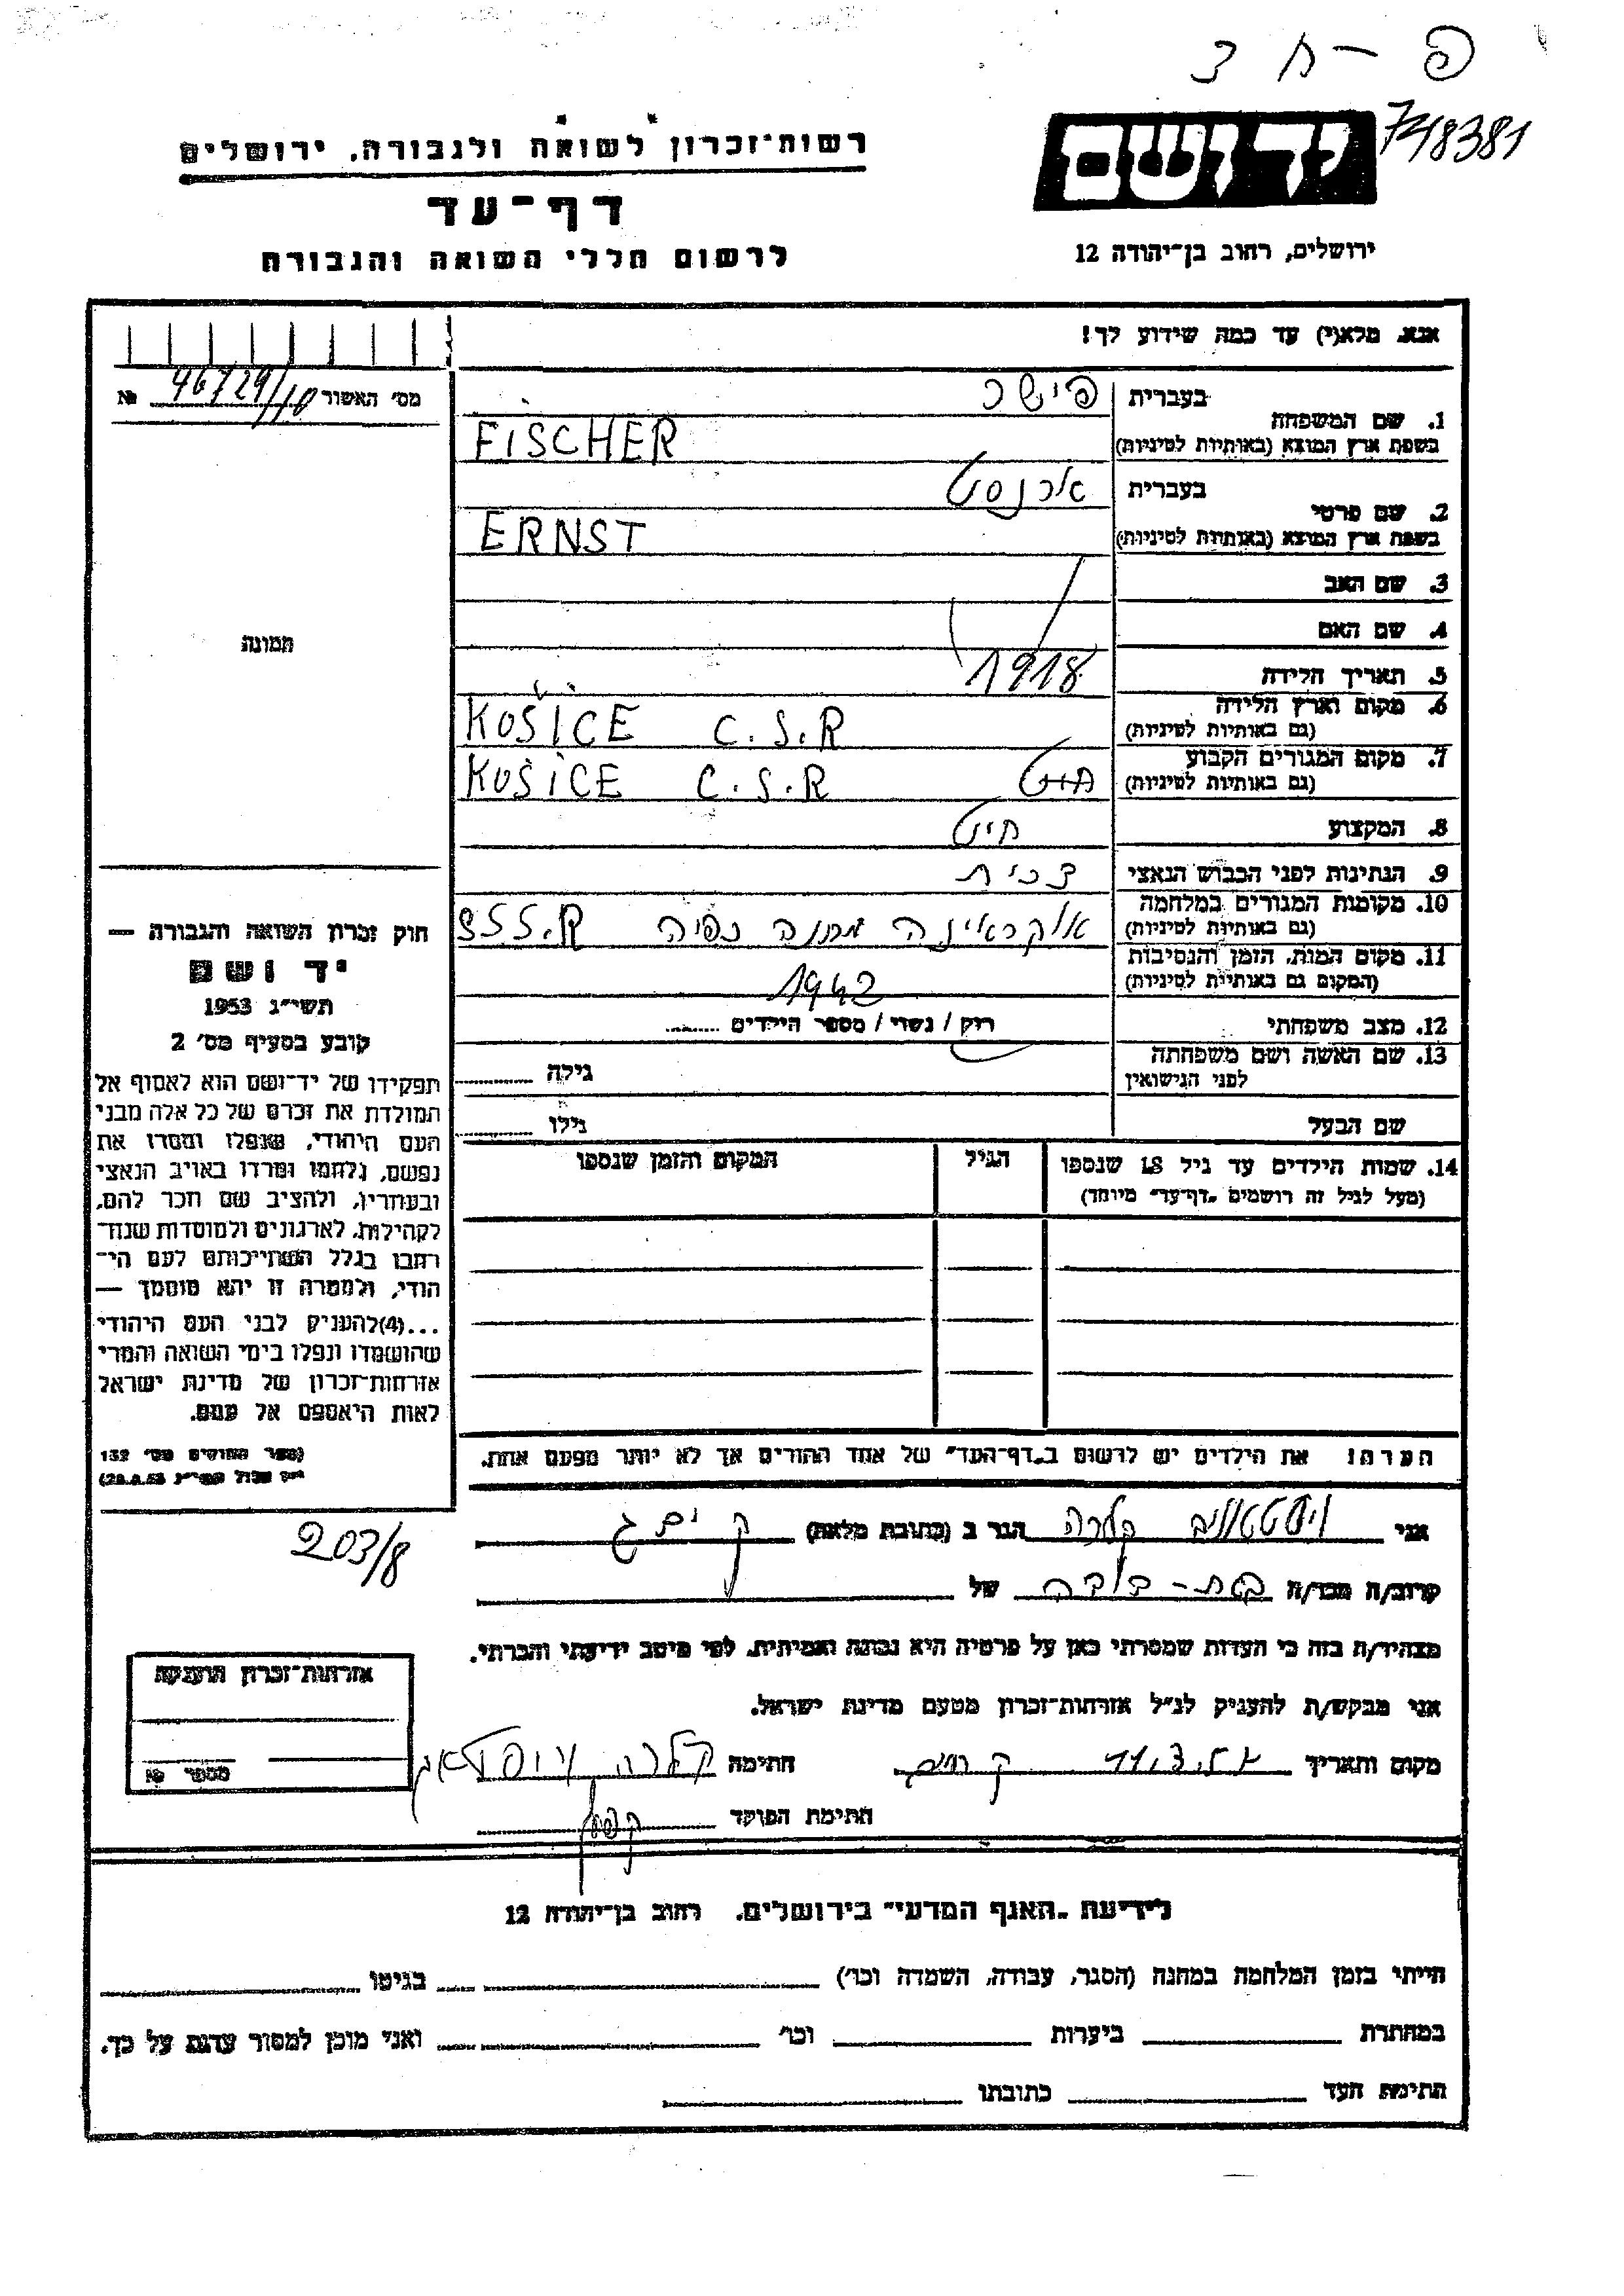 פ - ח צ
יד ושם
718381
ירושלים, רחוב בן־יהודה 12
רשות־זכרון לשואה ולגבורה, ירושלים
דף־עד
לרשום חללי השואה והגבורה
אנא, מלא(י) עד כמה שידוע לך!
מס׳ האשור 46729/10 №
תמונה
1. שם המשפחה
בעברית פישר
בשפת ארץ המוצא (באותיות לטיניות) FISCHER
2. שם פרטי
בעברית ארנסט
בשפת ארץ המוצא (באותיות לטיניות) ERNST
3. שם האב
4. שם האם
5. תאריך הלידה 1918
6. מקום וארץ הלידה
(גם באותיות לטיניות) KOŠICE C.S.R
7. מקום המגורים הקבוע
(גם באותיות לטיניות) KOŠICE C.S.R
8. המקצוע חייט
9. הנתינות לפני הכבוש הנאצי צכית
10. מקומות המגורים במלחמה
(גם באותיות לטיניות) אוקראינה מחנה כפיה SSS.R
11. מקום המות, הזמן והנסיבות
(המקום גם באותיות לטיניות) 1942
12. מצב משפחתי רוק / נשוי / מספר הילדים
13. שם האשה ושם משפחתה
לפני הנישואין גילה
שם הבעל גילו
14. שמות הילדים עד גיל 18 שנספו
(מעל לגיל זה רושמים „דף־עד” מיוחד)
הגיל
המקום והזמן שנספו
הערה: את הילדים יש לרשום ב„דף־העד” של אחד ההורים אך לא יותר מפעם אחת.
חוק זכרון השואה והגבורה —
יד ושם
תשי״ג 1953
קובע בסעיף מס׳ 2
תפקידו של יד־ושם הוא לאסוף אל
המולדת את זכרם של כל אלה מבני
העם היהודי, שנפלו ומסרו את
נפשם, נלחמו ומרדו באויב הנאצי
ובעוזריו, ולהציב שם וזכר להם,
לקהילות, לארגונים ולמוסדות שנח־
רבו בגלל השתייכותם לעם הי־
הודי, ולמטרה זו יהא מוסמך —
...(4) להעניק לבני העם היהודי
שהושמדו ונפלו בימי השואה והמרי
אזרחות־זכרון של מדינת ישראל
לאות היאספם אל עמם.
(ספר החוקים מס׳ 132
(28.8.53
203/8
אני קלרה הגר ב (כתובת מלאה)
קרוב/ה מכר/ה בת-דודה של
מצהיר/ה בזה כי העדות שמסרתי כאן על פרטיה היא נכונה ואמיתית, לפי מיטב ידיעתי והכרתי.
אני מבקש/ת להעניק לנ״ל אזרחות־זכרון מטעם מדינת ישראל.
מקום ותאריך חתימה קלרה
חתימת הפוקד
אזרחות־זכרון הוענקה
מספר №
לידיעת „האגף המדעי” בירושלים, רחוב בן־יהודה 12
הייתי בזמן המלחמה במחנה (הסגר, עבודה, השמדה וכו׳) בגיטו
במחתרת ביערות וכו׳ ואני מוכן למסור עדות על כך.
חתימת העד כתובתו